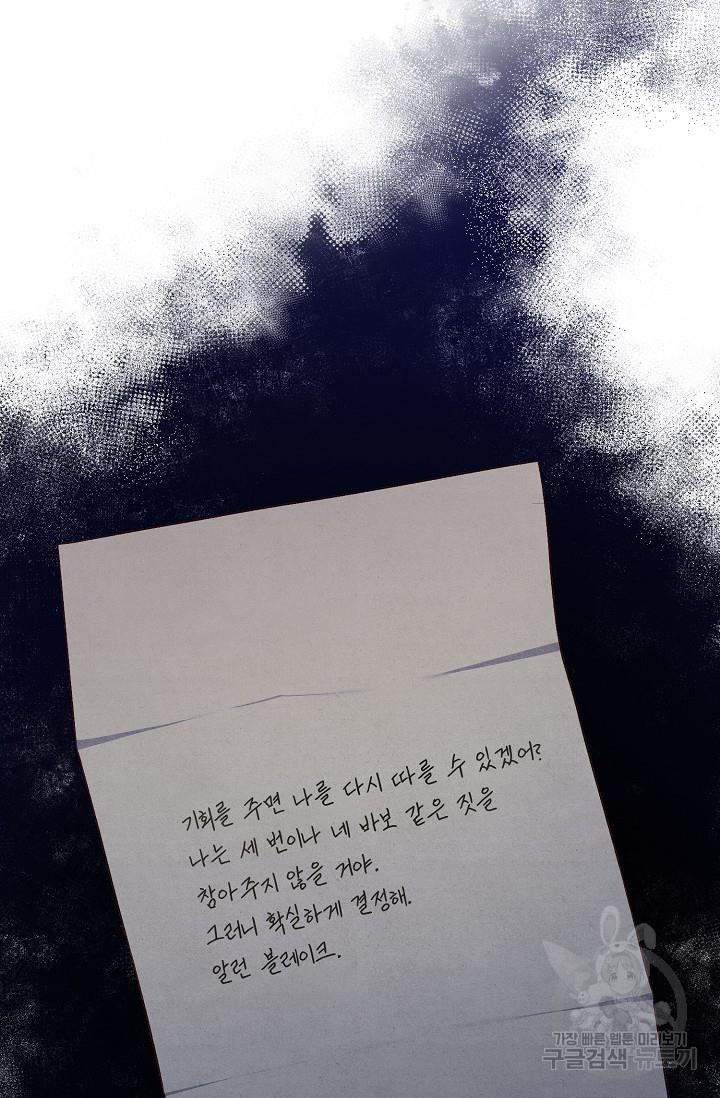 기회를 주면 나를 다시 따를 수 있겠어?
나는 세 번이나 네 바보 같은 짓을
참아주지 않을 거야.
그러니 확실하게 결정해.
알런 블레이크.
가장 빠른 웹툰 미리보기
구글검색 뉴토끼